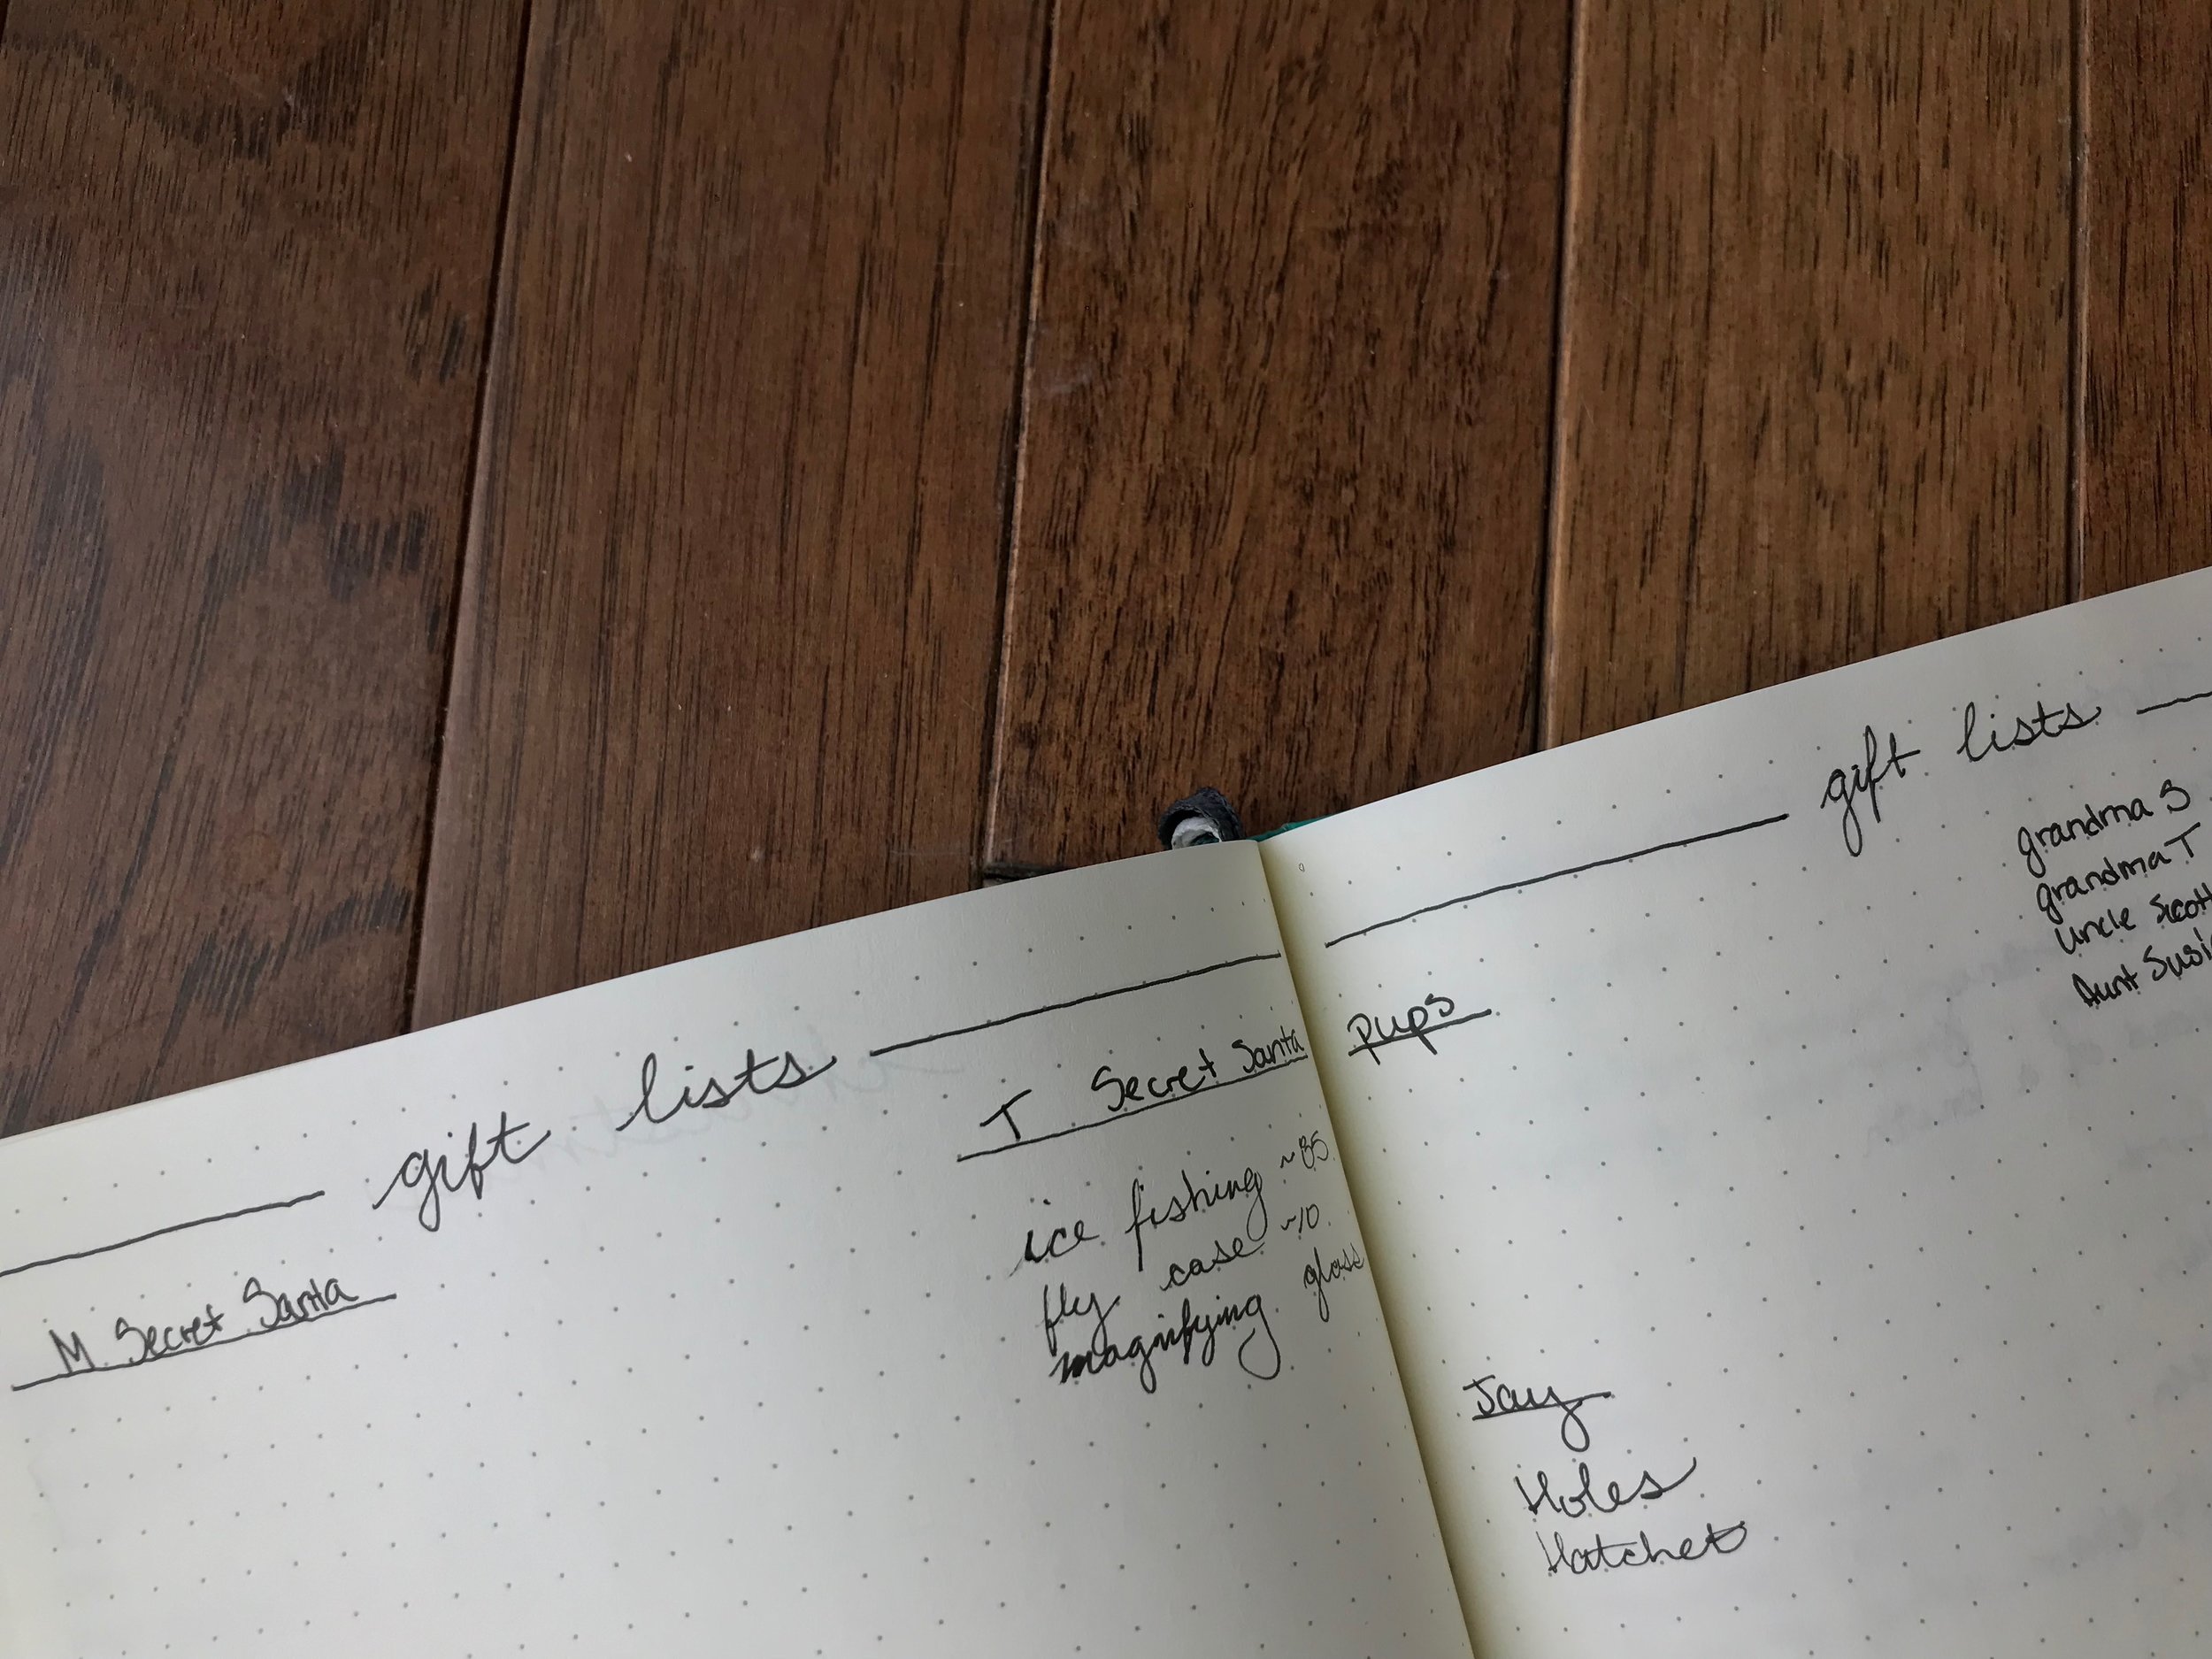 gift lists
M Secret Santa
T Secret Santa
ice fishing
fly case ~10
magnifying glass
gift lists
grandma S
grandma T
Uncle Scott
Aunt
pups
Jay
Holes
Hatchet